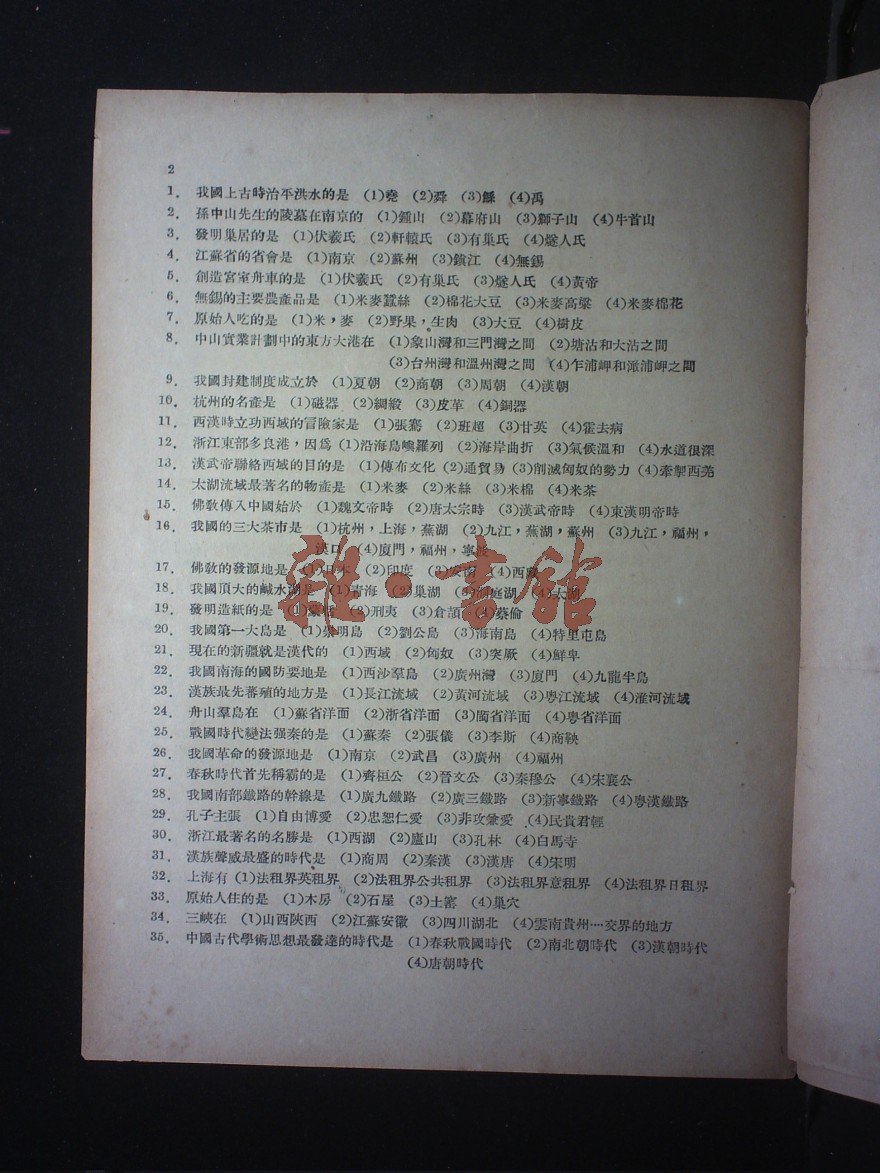 2
1. 我國上古時治平洪水的是 (1)堯 (2)舜 (3)鯀 (4)禹
2. 孫中山先生的陵墓在南京的 (1)鍾山 (2)幕府山 (3)獅子山 (4)牛首山
3. 發明巢居的是 (1)伏羲氏 (2)軒轅氏 (3)有巢氏 (4)燧人氏
4. 江蘇省的省會是 (1)南京 (2)蘇州 (3)鎮江 (4)無錫
5. 創造宮室舟車的是 (1)伏羲氏 (2)有巢氏 (3)燧人氏 (4)黃帝
6. 無錫的主要農產品是 (1)米麥蠶絲 (2)棉花大豆 (3)米麥高粱 (4)米麥棉花
7. 原始人吃的是 (1)米,麥 (2)野果,生肉 (3)大豆 (4)樹皮
8. 中山實業計劃中的東方大港在 (1)象山灣和三門灣之間 (2)塘沽和大沽之間
(3)台州灣和溫州灣之間 (4)乍浦岬和澉浦岬之間
9. 我國封建制度成立於 (1)夏朝 (2)商朝 (3)周朝 (4)漢朝
10. 杭州的名產是 (1)磁器 (2)綢緞 (3)皮革 (4)銅器
11. 西漢時立功西域的冒險家是 (1)張騫 (2)班超 (3)甘英 (4)霍去病
12. 浙江東部多良港,因爲 (1)沿海島嶼羅列 (2)海岸曲折 (3)氣候溫和 (4)水道很深
13. 漢武帝聯絡西域的目的是 (1)傳布文化 (2)通貿易 (3)削滅匈奴的勢力 (4)牽掣西羌
14. 太湖流域最著名的物產是 (1)米麥 (2)米絲 (3)米棉 (4)米茶
15. 佛敎傳入中國始於 (1)魏文帝時 (2)唐太宗時 (3)漢武帝時 (4)東漢明帝時
16. 我國的三大茶市是 (1)杭州,上海,蕪湖 (2)九江,蕪湖,蘇州 (3)九江,福州,
漢口 (4)廈門,福州,寧波
17. 佛敎的發源地是 (1)日本 (2)印度 (3)安南 (4)西藏
18. 我國頂大的鹹水湖是 (1)青海 (2)巢湖 (3)洞庭湖 (4)太湖
19. 發明造紙的是 (1)蒙恬 (2)刑夷 (3)倉頡 (4)蔡倫
20. 我國第一大島是 (1)崇明島 (2)劉公島 (3)海南島 (4)特里屯島
21. 現在的新疆就是漢代的 (1)西域 (2)匈奴 (3)突厥 (4)鮮卑
22. 我國南海的國防要地是 (1)西沙羣島 (2)廣州灣 (3)廈門 (4)九龍半島
23. 漢族最先蕃殖的地方是 (1)長江流域 (2)黃河流域 (3)粵江流域 (4)淮河流域
24. 舟山羣島在 (1)蘇省洋面 (2)浙省洋面 (3)閩省洋面 (4)粵省洋面
25. 戰國時代變法强秦的是 (1)蘇秦 (2)張儀 (3)李斯 (4)商鞅
26. 我國革命的發源地是 (1)南京 (2)武昌 (3)廣州 (4)福州
27. 春秋時代首先稱霸的是 (1)齊桓公 (2)晉文公 (3)秦穆公 (4)宋襄公
28. 我國南部鐵路的幹線是 (1)廣九鐵路 (2)廣三鐵路 (3)新寧鐵路 (4)粵漢鐵路
29. 孔子主張 (1)自由博愛 (2)忠恕仁愛 (3)非攻兼愛 (4)民貴君輕
30. 浙江最著名的名勝是 (1)西湖 (2)廬山 (3)孔林 (4)白馬寺
31. 漢族聲威最盛的時代是 (1)商周 (2)秦漢 (3)漢唐 (4)宋明
32. 上海有 (1)法租界英租界 (2)法租界公共租界 (3)法租界意租界 (4)法租界日租界
33. 原始人住的是 (1)木房 (2)石屋 (3)土窰 (4)巢穴
34. 三峽在 (1)山西陝西 (2)江蘇安徽 (3)四川湖北 (4)雲南貴州····交界的地方
35. 中國古代學術思想最發達的時代是 (1)春秋戰國時代 (2)南北朝時代 (3)漢朝時代
(4)唐朝時代
雜·書館